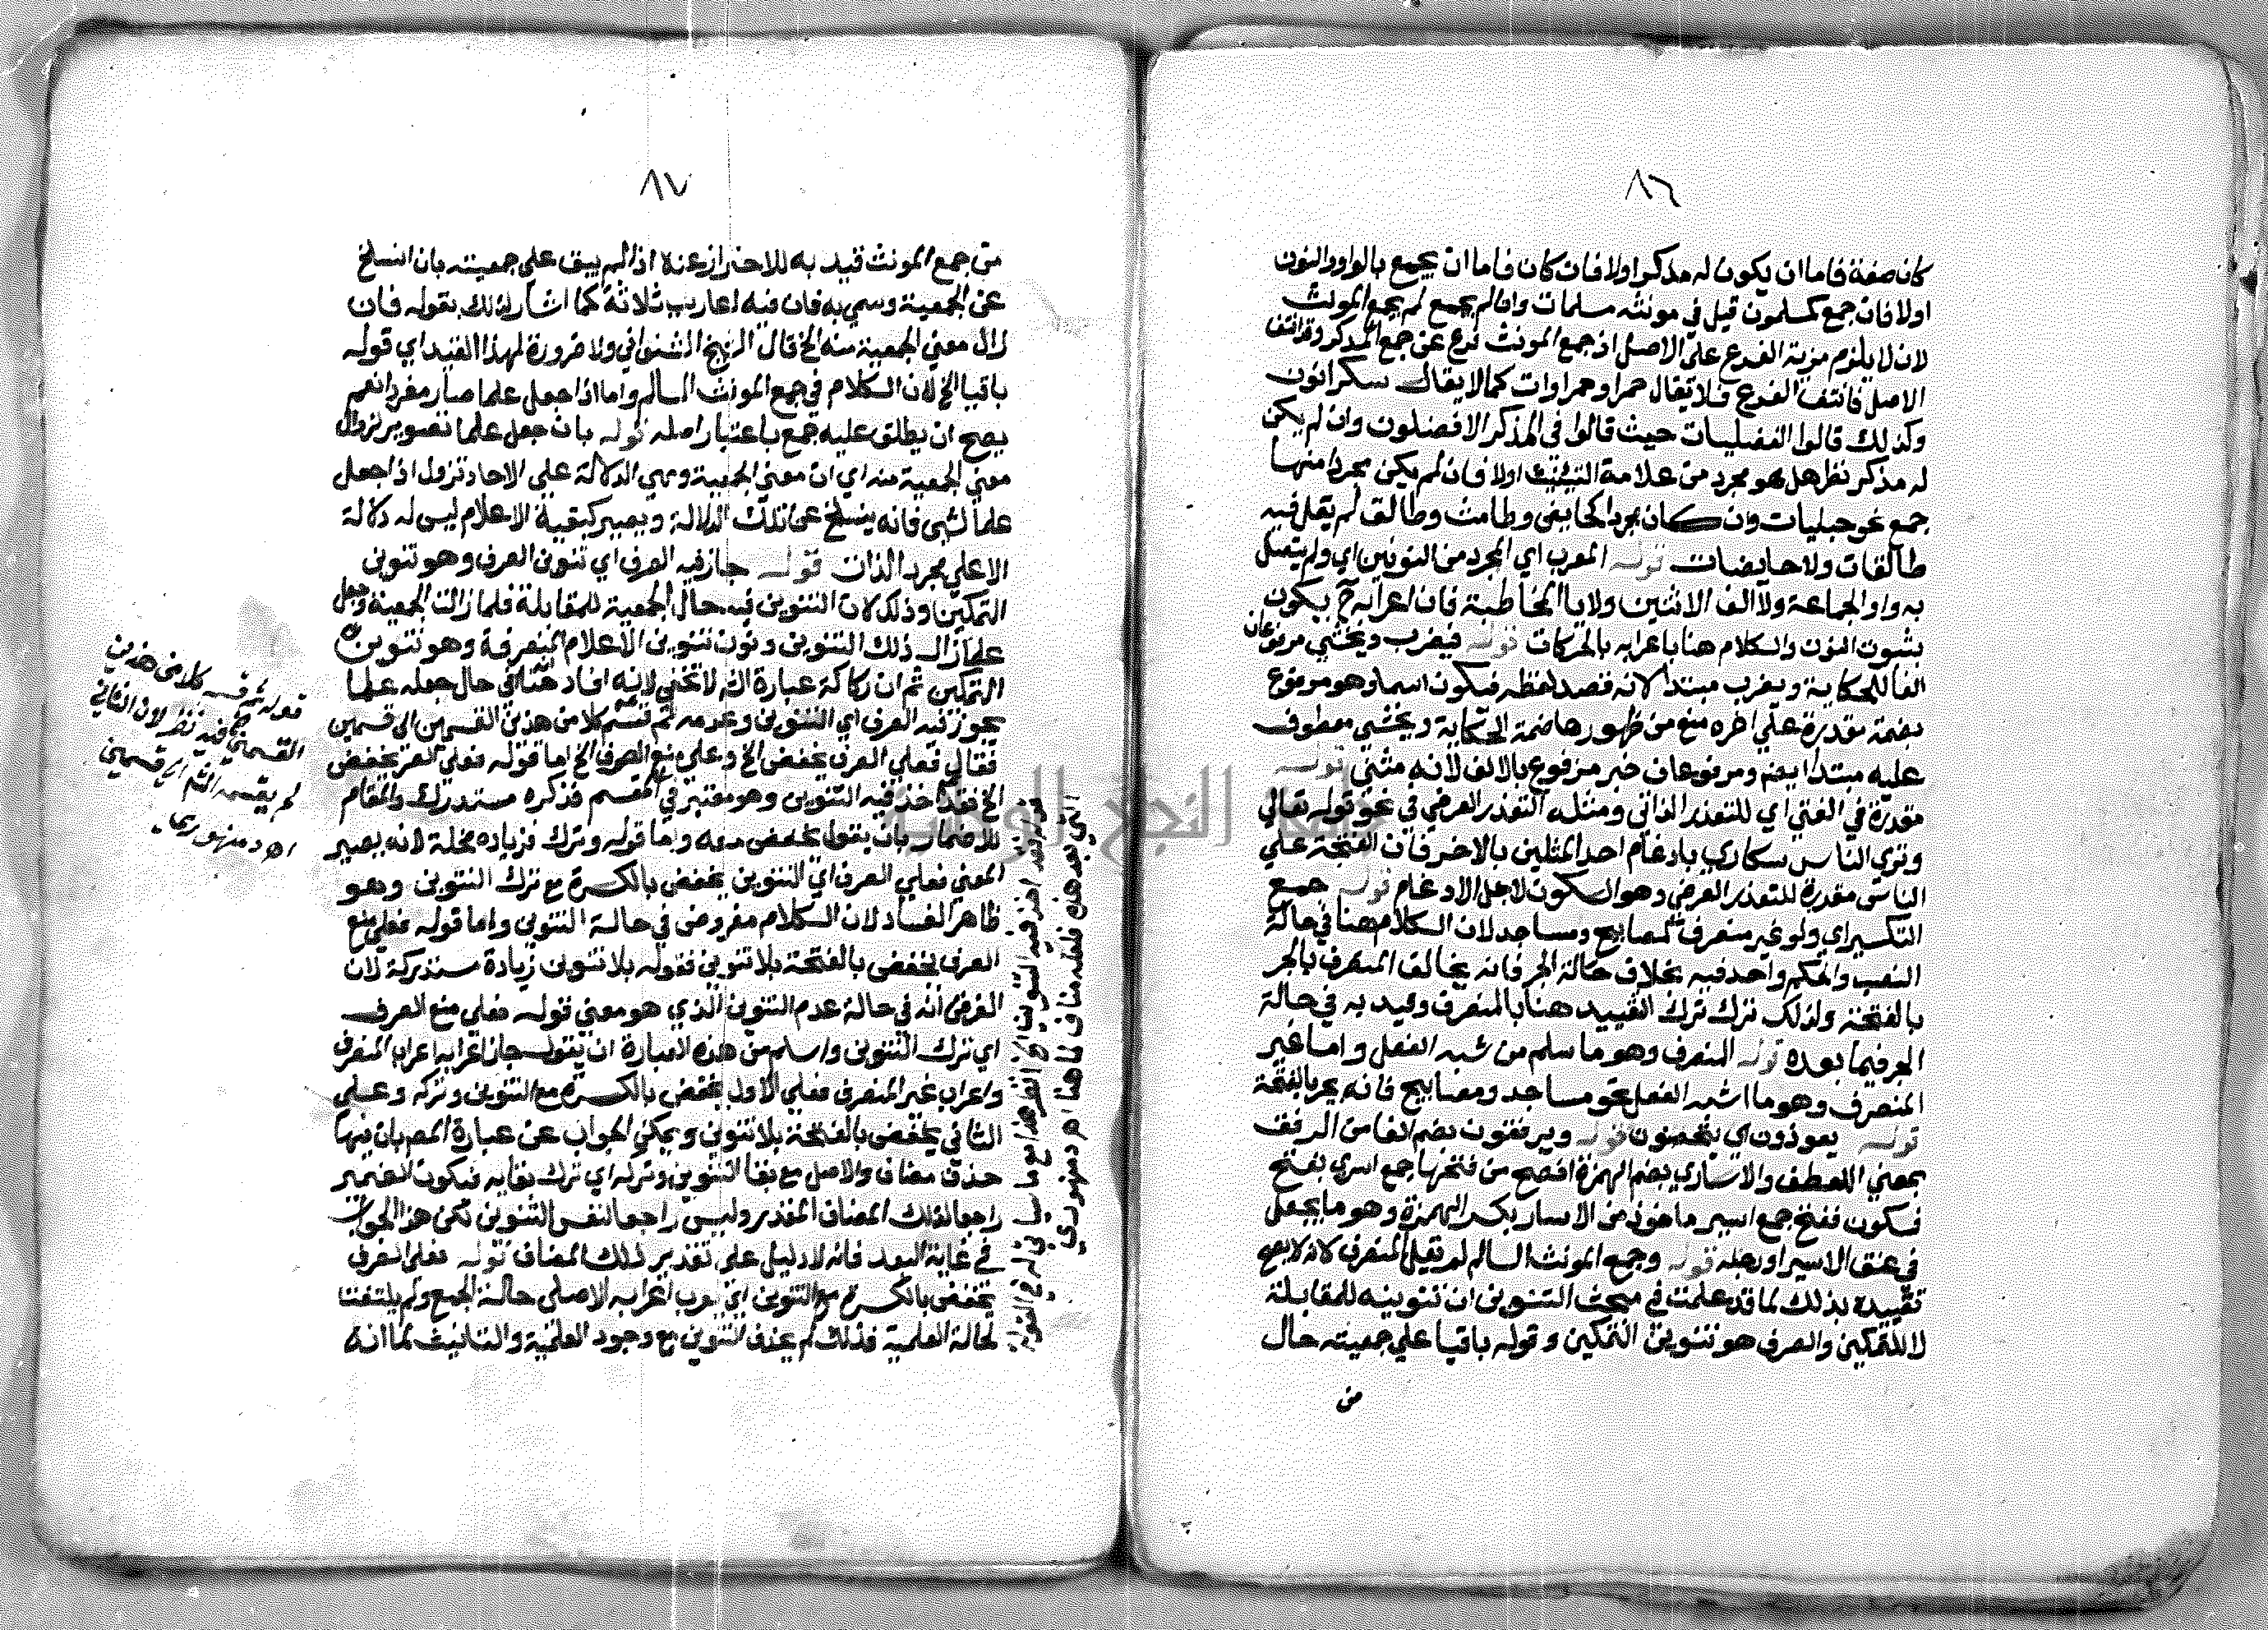 ٨٦
كان صفة فاما ان يكون له مذكر اولا فان كان فاما ان يجمع بالواو والنون
اولا فان جمع كمسلمون قيل في مونثه مسلمات وان لم يجمع لم يجمع المونث
لان لا يلزم مزية الفرع على الاصل اذ جمع المونث فرع عن جمع المذكر وقد انتف
الاصل فانتف الفرع فلا يقال حمرا وحمراوات كما لا يقال سكرانون
وكذلك قالوا الفضليات حيث قالوا في المذكر الافضلون وان لم يكن
له مذكر نظر هل هو مجرد من علامة التانيث اولا فان لم يكن مجردا منها
جمع نحو حبليات وان كان مجردا كحايض وطامث وطالق لم يقل فيه
طالقات ولا حايضات قوله المعرب اي المجرد من النونين اي ولم يتصل
به واو الجماعة ولا الف الاثنين ولا يا المخاطبة فان اعرابه ح يكون
بثبوت النون والكلام هنا باعرابه بالحركات قوله فيضرب ويخشي مرفوعان
الفا للحكاية ويضرب مبتدا لانه قصد لفظه فيكون اسما وهو مرفوع
بضمة مقدرة علي اخره منع من ظهورها ضمة الحكاية ويخشي معطوف
عليه مبتدا ايضم ومرفوعان خبر مرفوع بالالف لانه مثني قوله
مقدرة في الفتي اي للتعذر الذاتي ومثله التعذر العرضي في نحو قوله تعالي
وتري الناس سكاري بادغام احد المثلين بالاخر فان الفتحة علي
الناس مقدرة للتعذر العرضي وهو السكون لاجل الادغام قوله جمع
التكسير اي ولو غير منصرف كمصابيح ومساجد لان الكلام هنا في حالة
النصب والحكم واحد فيه بخلاف حالة الجر فانه يخالف المنصرف بالجر
بالفتحة ولذلك ترك ترك التقييد هنا بالمنصرف وقيد به في حالة
الجر فيما بعده قوله المنصرف وهو ما سلم من شبه الفعل واما غير
المنصرف وهو ما اشبه الفعل نحو مساجد ومصابيح فانه يجر بالفتحة
قوله يعوذون اي يتحصنون قوله ويرفقون بضم الفا من الرفق
بمعني اللطف والاساري بضم الهمزة افصح من فتحها جمع اسري بفتح
فسكون ففتح جمع اسير ماخوذ من الاسار بكسر الهمزة وهو ما يجعل
في عنق الاسير او رجله قوله وجمع المونث السالم لم يقل المنصرف لانه لا يصح
تقييده بذلك لما قد علمت في مبحث التنوين ان تنوينه للمقابلة
لا للتمكين والصرف هو تنوين التمكين وقوله باقيا علي جمعيته حال
من
٨٧
من جمع المونث قيد به للاحتراز عنه اذا لم يبق علي جمعيته بان انسلخ
عن الجمعية وسمي به فان فيه اعاريب ثلاثة كما اشار لذلك بقوله فان
زال معني الجمعية منه الخ قال الشيخ الشنواني ولا ضرورة لهذا القيد اي قوله
باقيا الخ لان الكلام في جمع المونث السالم واما اذا جعل علما صار مفردا نعم
يصح ان يطلق عليه جمع باعتبار اصله قوله بان جعل علما تصوير لزوال
معني الجمعية منه اي ان معني الجمعية وهي الدلالة علي الاحاد تزول اذا جعل
علما لشي فانه ينسلخ عن تلك الدلالة ويصير كبقية الاعلام ليس له دلالة
الا علي مجرد الذات قوله جاز فيه الصرف اي تنوين الصرف وهو تنوين
التمكين وذلك لان التنوين فيه حال الجمعية للمقابلة فلما زالت الجمعية وجعل
علما زال ذلك التنوين ونون تنوين الاعلام المنصرفة وهو تنوين
التمكين ثم ان ركاكة عبارة الشم لا تخفي لانه افاد هنا في حال جعله علما
يجوز فيه الصرف اي التنوين وعدمه ثم قسم كلا من هذين القسمين الي قسمين
فقال فعلي الصرف يخفض الخ وعلي منع الصرف الخ اما قوله فعلي الصرف يخفض
الخ فقد اخذ فيه التنوين وهو معتبر في المقسم فذكره مستدرك والمقام
للاضمار بان يقول يخفض معه واما قوله وترك فزياده مخلة لانه يصير
المعني فعلي الصرف اي التنوين يخفض بالكسرة مع ترك التنوين وهو
ظاهر الفساد لان الكلام مفروض في حالة التنوين واما قوله فعلي منع
الصرف يخفض بالفتحة بلا تنوين فقوله بلا تنوين زيادة مستدركة لان
الفرض انه في حالة عدم التنوين الذي هو معني قوله فعلي منع الصرف
اي ترك التنوين واسلم من هذه العبارة ان يقول جاز اعرابه اعراب المنصرف
واعراب غير المنصرف فعلي الاول يخفض بالكسرة مع التنوين وتركه وعلي
الثاني يخفض بالفتحة بلا تنوين ويمكن الجواب عن عبارة المصم بان فيها
حذف مضاف والاصل مع بقا التنوين وتركه اي ترك بقايه فيكون الضمير
راجعا لذلك المضاف المقدر وليس راجعا لنفس التنوين لكن هذا الجواب
في غاية البعد فانه لا دليل علي تقدير ذلك المضاف قوله فعلي الصرف
يخفض بالكسرة مع التنوين اي يعرب اعرابه الاصلي حالة الجمع ولم يلتفتا
لحالة العلمية فذلك لم يحذف التنوين مع وجود العلمية والتانيث لما انه
قوله ثم قسم كلا من هذين
القسمين فيه نظر لان الثاني
لم يقسمه الشم الي قسمين
اهـ دمنهوري